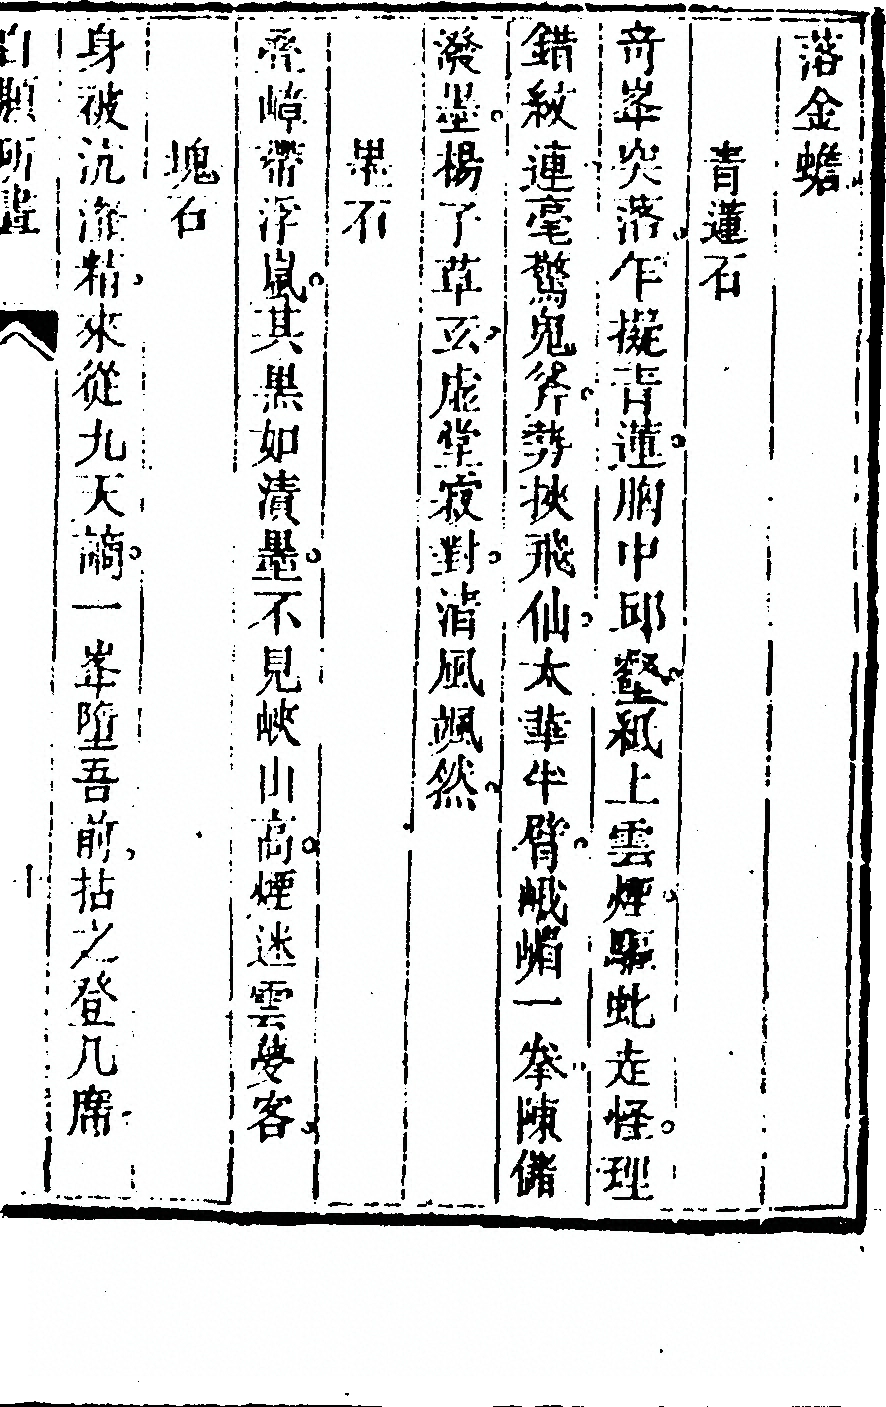 落金蟾
青蓮石
奇峯突落乍擬青蓮胸中邱壑紙上雲煙驅虬走怪理
錯紋連毫驚鬼斧勢挾飛仙太華半臂峨嵋一拳陳儲
潑墨楊子草玄虛堂寂對清風颯然
黑石
疊嶂帶浮嵐其黑如漬墨不見峽山高煙迷雲夢客
塊石
身被沆瀣精來從九天謫一峯墮吾前拈之登几席